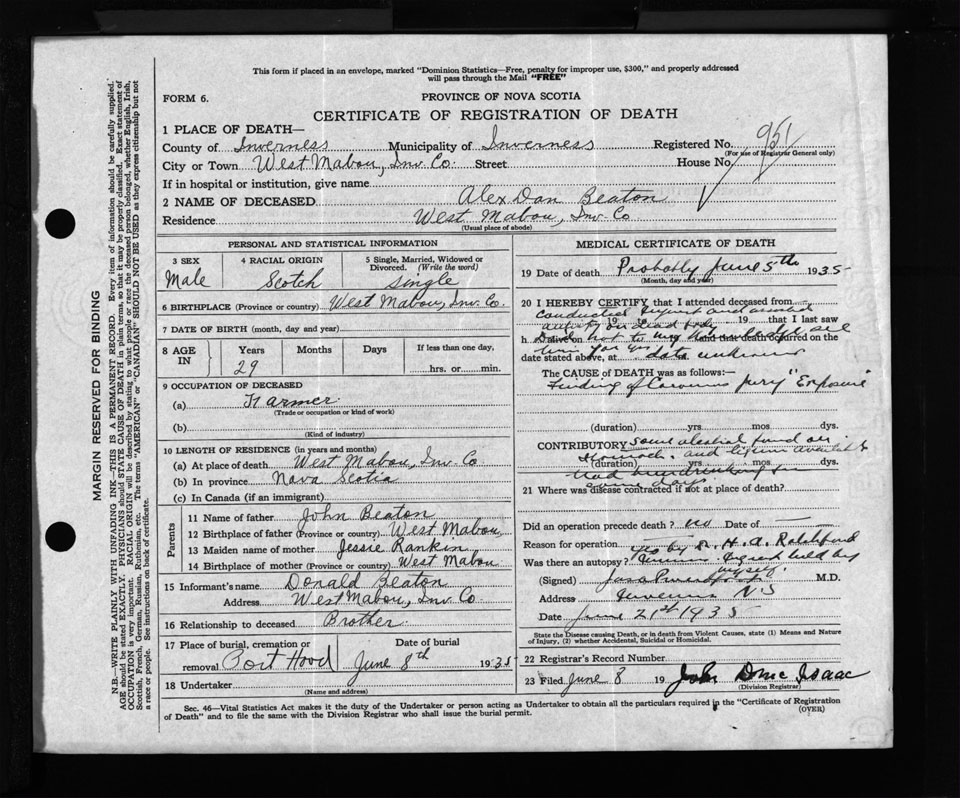 This form if placed in an envelope, marked "Dominion Statistics—Free, penalty for improper use, $300," and properly addressed
will pass through the Mail "FREE"
FORM 6.
PROVINCE OF NOVA SCOTIA
CERTIFICATE OF REGISTRATION OF DEATH
1 PLACE OF DEATH—
County of Inverness Municipality of Inverness Registered No. 951
(For use of Registrar General only)
City or Town West Mabou, Inv. Co. Street House No.
If in hospital or institution, give name
2 NAME OF DECEASED Alex Dan Beaton
Residence West Mabou, Inv. Co
(Usual place of abode)
PERSONAL AND STATISTICAL INFORMATION
3 SEX 4 RACIAL ORIGIN 5 Single, Married, Widowed or
Divorced. (Write the word)
Male Scotch Single
6 BIRTHPLACE (Province or country) West Mabou, Inv. Co.
7 DATE OF BIRTH (month, day and year)
8 AGE IN Years Months Days If less than one day,
29 hrs. or min.
9 OCCUPATION OF DECEASED
(a) Farmer
(Trade or occupation or kind of work)
(b)
(Kind of industry)
10 LENGTH OF RESIDENCE (in years and months)
(a) At place of death West Mabou, Inv. Co
(b) In province Nova Scotia
(c) In Canada (if an immigrant)
Parents
11 Name of father John Beaton
12 Birthplace of father (Province or country) West Mabou,
13 Maiden name of mother Jessie Rankin
14 Birthplace of mother (Province or country) West Mabou
15 Informant's name Donald Beaton
Address West Mabou, Inv. Co
16 Relationship to deceased Brother
17 Place of burial, cremation or Date of burial
removal Port Hood June 8th 1935
18 Undertaker
(Name and address)
MEDICAL CERTIFICATE OF DEATH
19 Date of death Probably June 5th 1935
(Month, day and year)
20 I HEREBY CERTIFY that I attended deceased from
conducted and
autopsy on dead body 19 19 that I last saw
h alive on not to my and that death occurred on the
date stated above, at date unknown
The CAUSE of DEATH was as follows:—
Finding of Coroners jury "Exposure"
(duration) yrs mos dys.
CONTRIBUTORY some alcohol found in
stomach. and
(duration) yrs mos dys.
had been drinking for
some days.
21 Where was disease contracted if not at place of death?
Did an operation precede death? no Date of —
Reason for operation —
Was there an autopsy? yes by Dr. H. A. Ratchford
held by
myself.
(Signed) M.D.
Address Inverness N S
Date June 21st 1935
State the Disease causing Death, or in death from Violent Causes, state (1) Means and Nature
of Injury, (2) whether Accidental, Suicidal or Homicidal.
22 Registrar's Record Number
23 Filed June 8 19 John Isaac
(Division Registrar)
Sec. 46—Vital Statistics Act makes it the duty of the Undertaker or person acting as Undertaker to obtain all the particulars required in the "Certificate of Registration
of Death" and to file the same with the Division Registrar who shall issue the burial permit.
(OVER)
MARGIN RESERVED FOR BINDING
N.B.—WRITE PLAINLY WITH UNFADING INK—THIS IS A PERMANENT RECORD. Every item of information should be carefully supplied.
AGE should be stated EXACTLY. PHYSICIANS should STATE CAUSE OF DEATH in plain terms, so that it may be properly classified. Exact statement of
OCCUPATION is very important. RACIAL ORIGIN will be described by stating to what people or race the deceased person belonged, whether English, Irish,
Scottish, French, German, Russian, Ruthenian, etc. The terms "AMERICAN" or "CANADIAN" SHOULD NOT BE USED as they express citizenship but not
a race or people. See instructions on back of certificate.